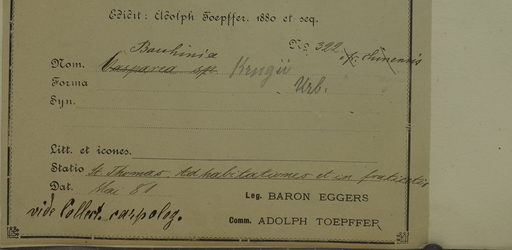 Edidit: Adolph Toepffer. 1880 et seq.
No. 322
Bauhinia
Nom. Casparea sp. Krugii
Forma Urb.
Syn.
Litt. et icones.
Statio St. Thomas. Ad habitationes et in fruticetis
Dat. Mai 81
Leg. BARON EGGERS
vide Collect. carpolog.
Comm. ADOLPH TOEPFFER